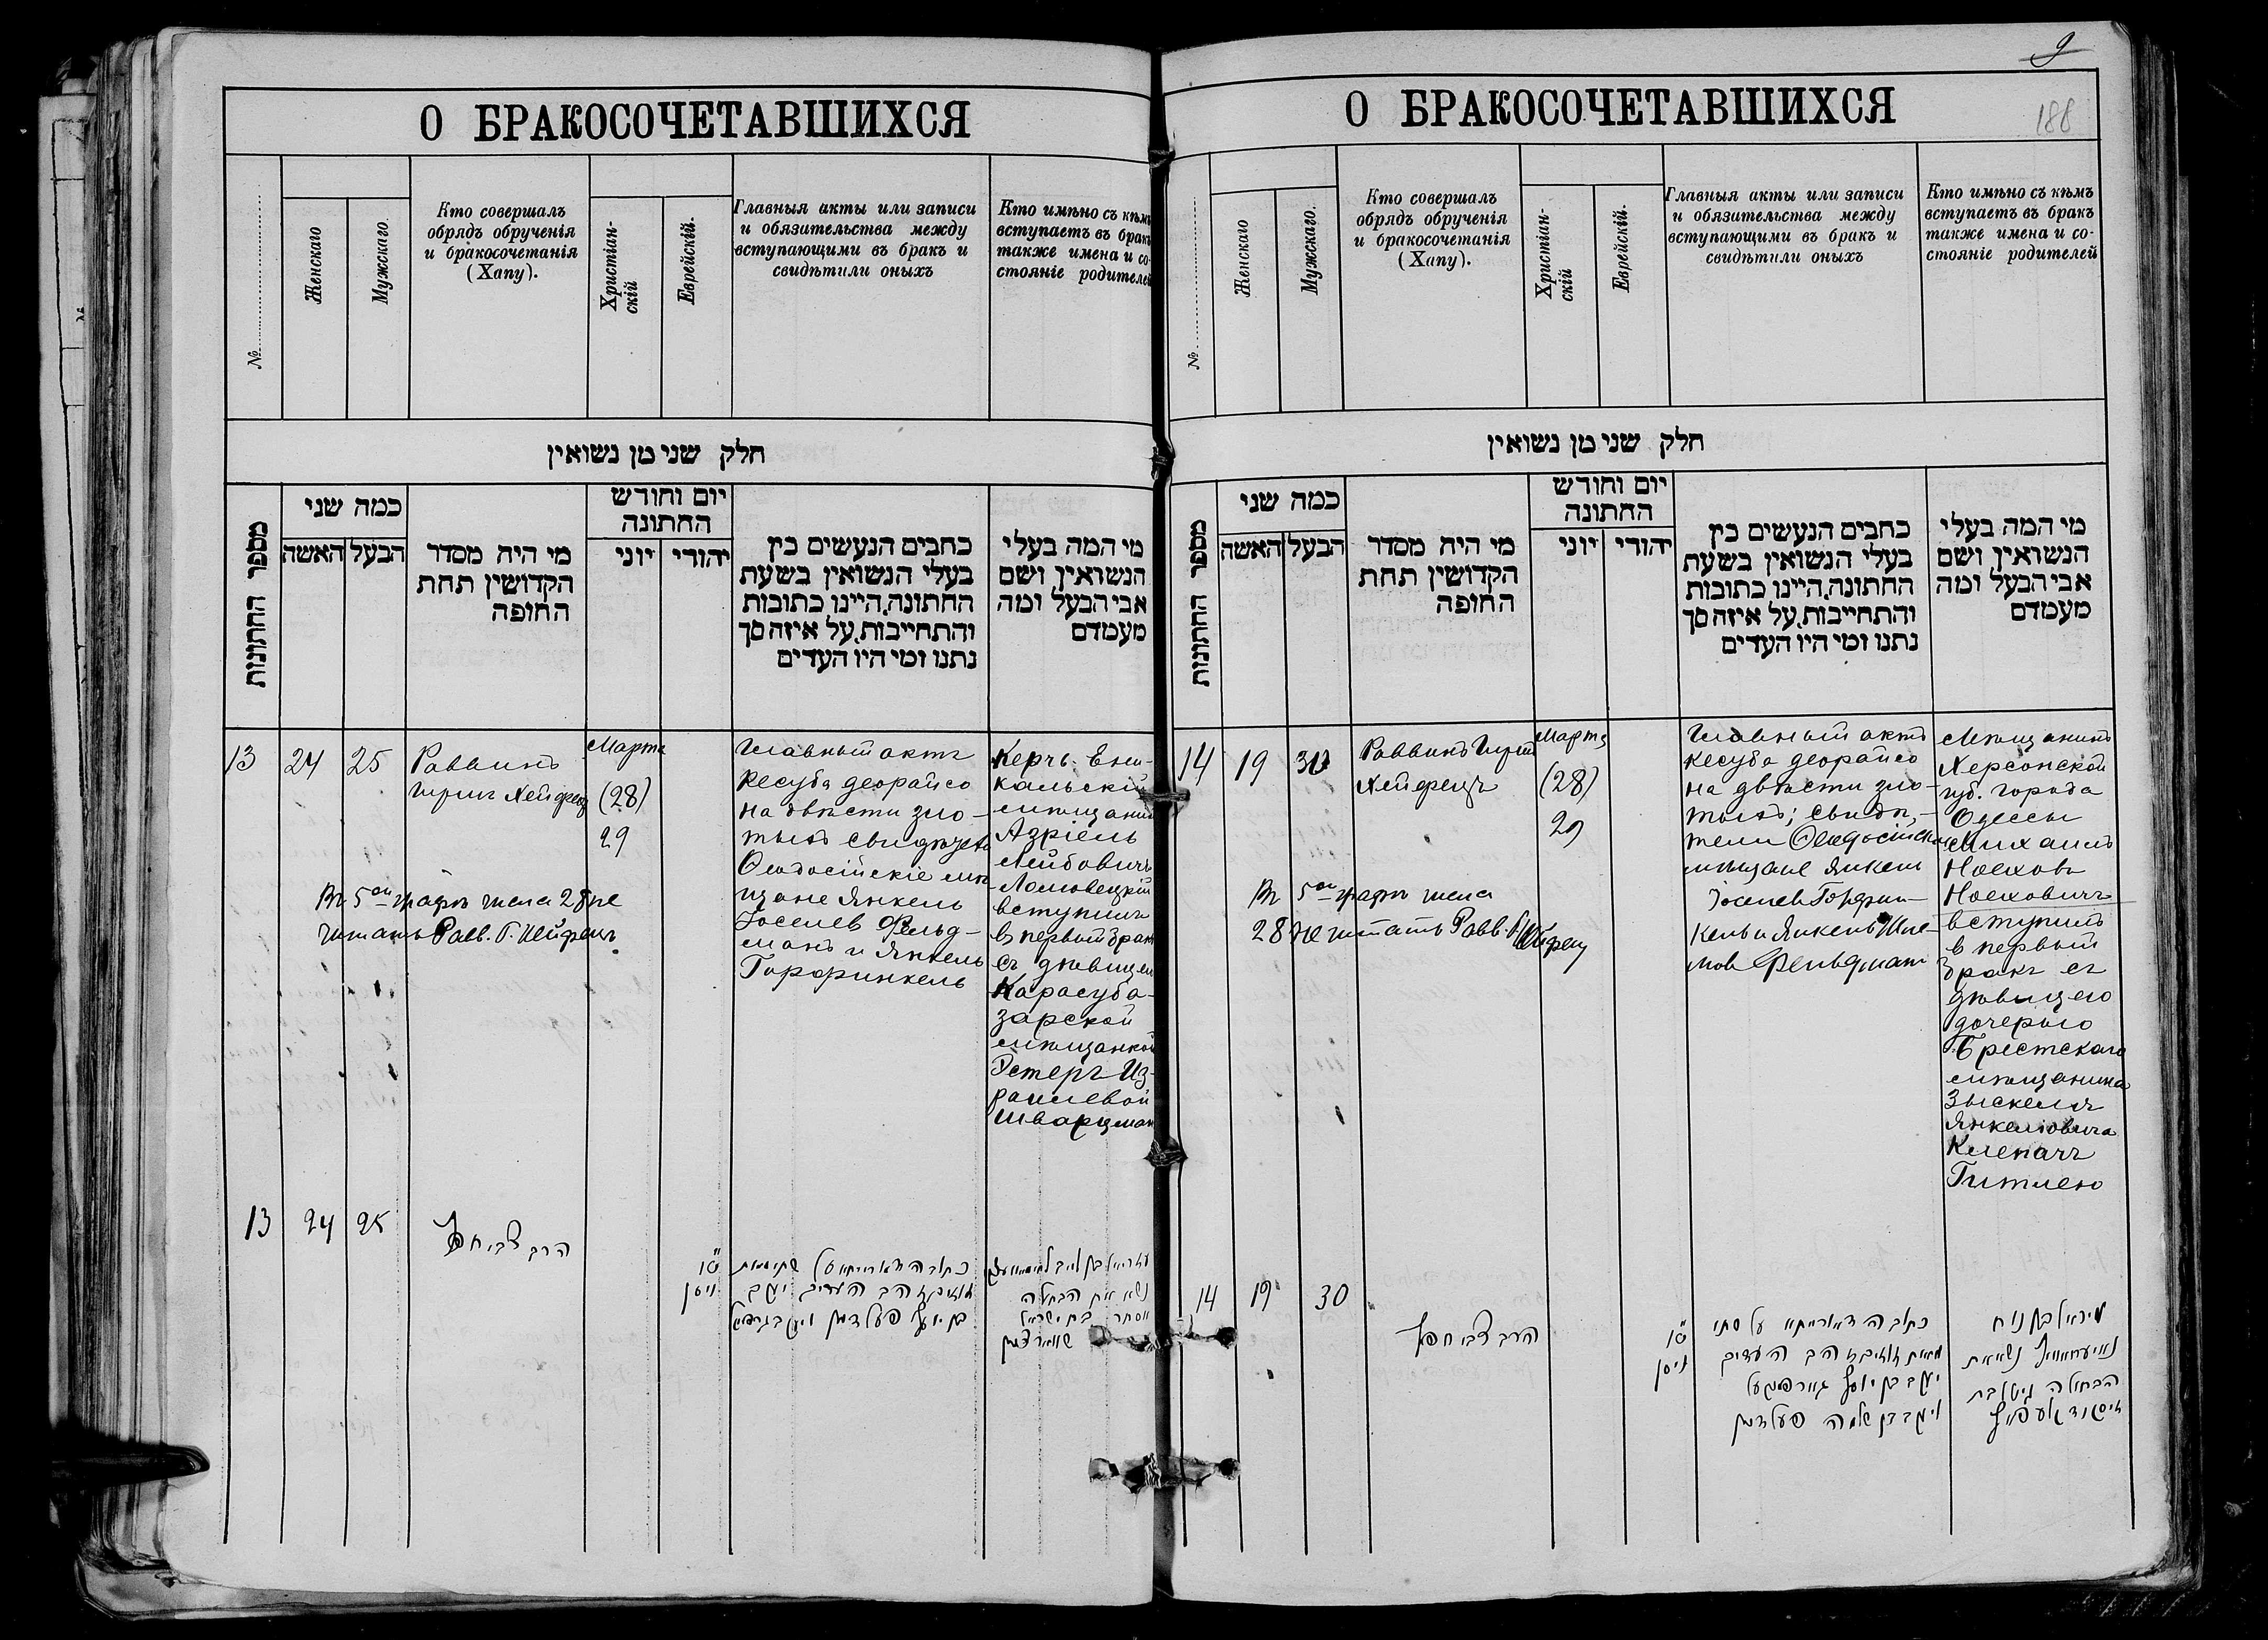 О БРАКОСОЧЕТАВШИХСЯ
№
Женскаго
Мужскаго.
Кто совершалъ
обрядъ обрученія
и бракосочетанія
(Хапу).
Христіан-
скій
Еврейскій.
Главныя акты или записи
и обязательства между
вступающими въ бракъ и
свидѣтили оныхъ
Кто имѣно съ кѣмъ
вступаетъ въ бракъ
также имена и со-
стояніе родителей
חלק שני מן נשואין
מספר החתונות
כמה שני
האשה
הבעל
מי היה מסדר
הקדושין תחת
החופה
יום וחודש
החתונה
יוני
יהודי
כתבים הנעשים בין
בעלי הנשואין בשעת
החתונה, היינו כתובות
והתחייבות, על איזה סך
נתנו ומי היו העדים
מי המה בעלי
הנשואין ושם
אבי הבעל ומה
מעמדם
13
24
25
Раввинъ
Гиршъ Хейфецъ
Марта
(28)
29
Главный актъ
кесуба деорайсо
на двѣсти зло-
тыхъ свидѣтели
Ѳеодосійскіе мѣ
щане Янкель
Іоселев Фельд-
манъ и Янкель
Горфинкель
Керчь-Ени-
кальскій
мѣщанинъ
Азріель
Лейбовичъ
вступилъ
въ первый бракъ
съ дѣвицею
Карасуба-
зарской
мѣщанкой
Эстеръ Из-
раилевой
Шварцман
Въ 5ой графѣ числа 28 не
читать Равв. Г. Хейфецъ
13
24
25
הרב צבי חפץ
ט"ו
ניסן
כתובה דאורייתא על שתי מאות
זוזים זהב העדים יעקב
בן יוסף פעלדמן
נשא את הבתולה
אסתר בת ישראל
שווארצמן
9
188
О БРАКОСОЧЕТАВШИХСЯ
№
Женскаго
Мужскаго.
Кто совершалъ
обрядъ обрученія
и бракосочетанія
(Хапу).
Христіан-
скій
Еврейскій.
Главныя акты или записи
и обязательства между
вступающими въ бракъ и
свидѣтили оныхъ
Кто имѣно съ кѣмъ
вступаетъ въ бракъ
также имена и со-
стояніе родителей
חלק שני מן נשואין
מספר החתונות
כמה שני
האשה
הבעל
מי היה מסדר
הקדושין תחת
החופה
יום וחודש
החתונה
יוני
יהודי
כתבים הנעשים בין
בעלי הנשואין בשעת
החתונה, היינו כתובות
והתחייבות, על איזה סך
נתנו ומי היו העדים
מי המה בעלי
הנשואין ושם
אבי הבעל ומה
מעמדם
14
19
30
Раввинъ Гиршъ
Хейфецъ
Марта
(28)
29
Главный актъ
кесуба деорайсо
на двѣсти зло-
тыхъ; свидѣ-
тели Ѳеодосійскіе
мѣщане Янкель
Іоселев Горфин-
кель и Янкель Шле-
мов Фельдман
Мѣщанинъ
Херсонской
губ. города
Одессы
Михаилъ
Ноехов
Ноеховичъ
вступилъ
в первый
бракъ съ
дѣвицею
дочерью
Брестскаго
мѣщанина
Зыскеля
Янкелювича
Клепачъ
Гитлею
Въ 5ой графѣ числа
28 не читать Равв. Г. Хейфец
14
19
30
הרב צבי חפץ
ט"ו
ניסן
כתובה דאורייתא על שתי
מאות זוזים זהב העדים
יעקב בן יוסף גארפינקעל
ויעקב בן שלמה פעלדמן
מיכאל בן נוח
נשא את
הבתולה גיטל בת